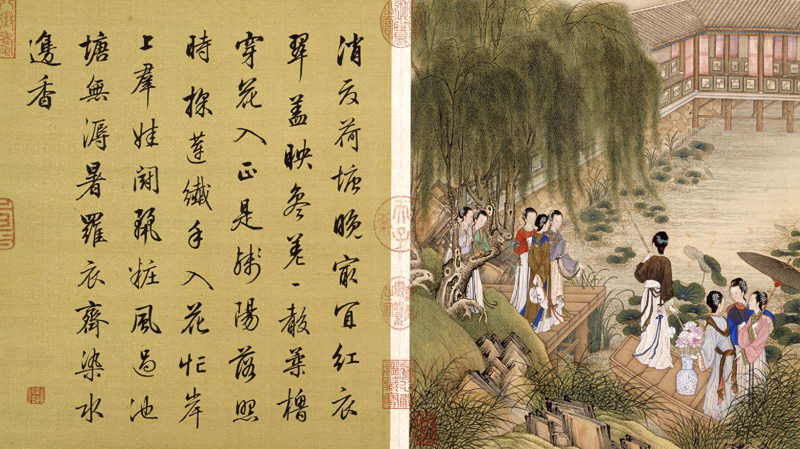 消夏荷塘晚最宜紅衣
翠蓋映參差一聲柔櫓
穿花入正是殘陽落照
時採蓮纖手入花忙岸
上羣娃鬪靚粧風過池
塘無溽暑羅衣齊染水
邊香